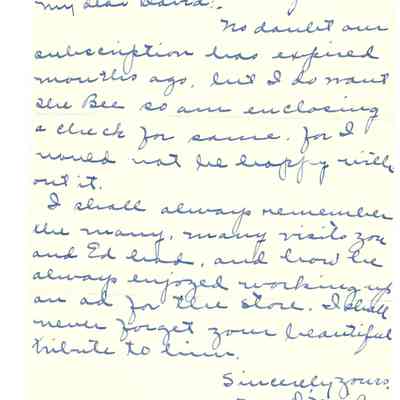 My dear David:
No doubt our
subscription has expired
months ago, but I do want
the Bee so am enclosing
a check for same. for I
would not be happy with
out it.
I shall always remember
the many, many visits you
and Ed had, and how he
always enjoyed working up
an ad for the store. I shall
never forget your beautiful
tribute to him.
Sincerely yours,